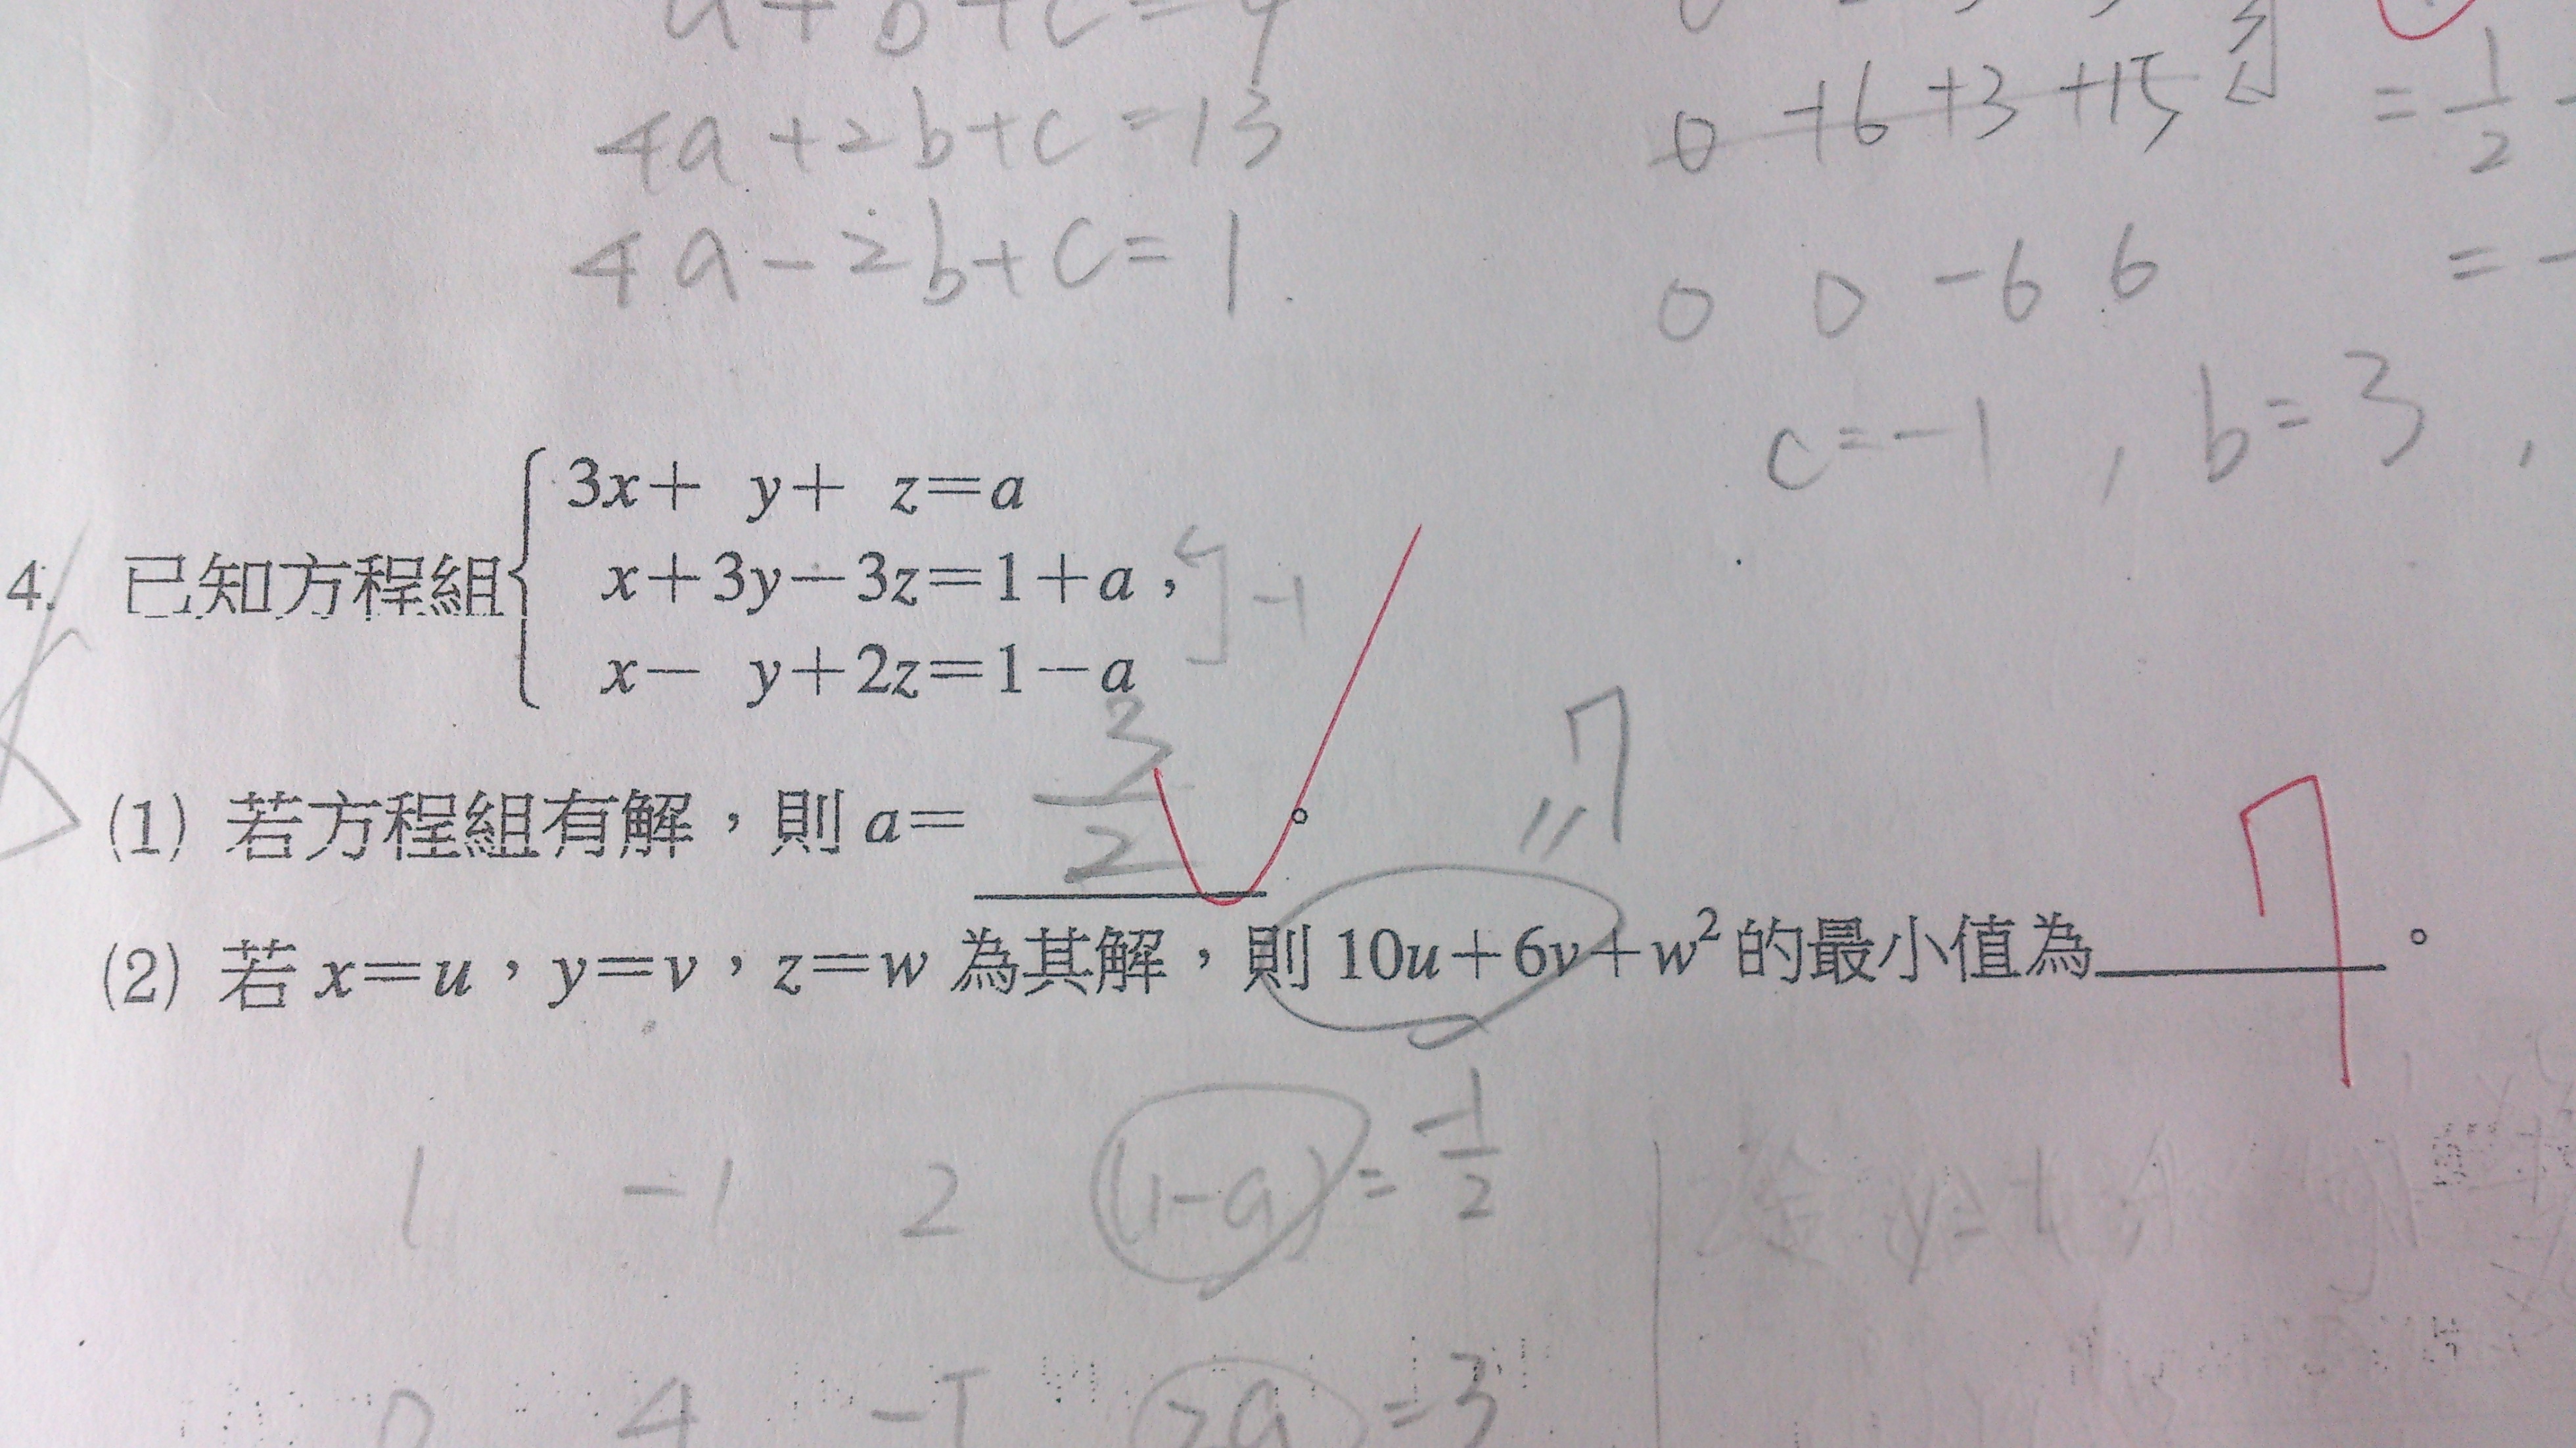 a+b+c=4
4a+2b+c=13
4a-2b+c=1
0 +6 +3 +15
= 1/2
0 0 -6 6
= -
c=-1 , b=3 ,
3x+ y+ z=a
4. 已知方程組 x+3y-3z=1+a, -1
x- y+2z=1-a
(1) 若方程組有解，則 a= 3/2 。
"7
(2) 若 x=u，y=v，z=w 為其解，則 10u+6v+w² 的最小值為 7 。
1 -1 2 (1-a) = -1/2
0 4 -5 2a =3